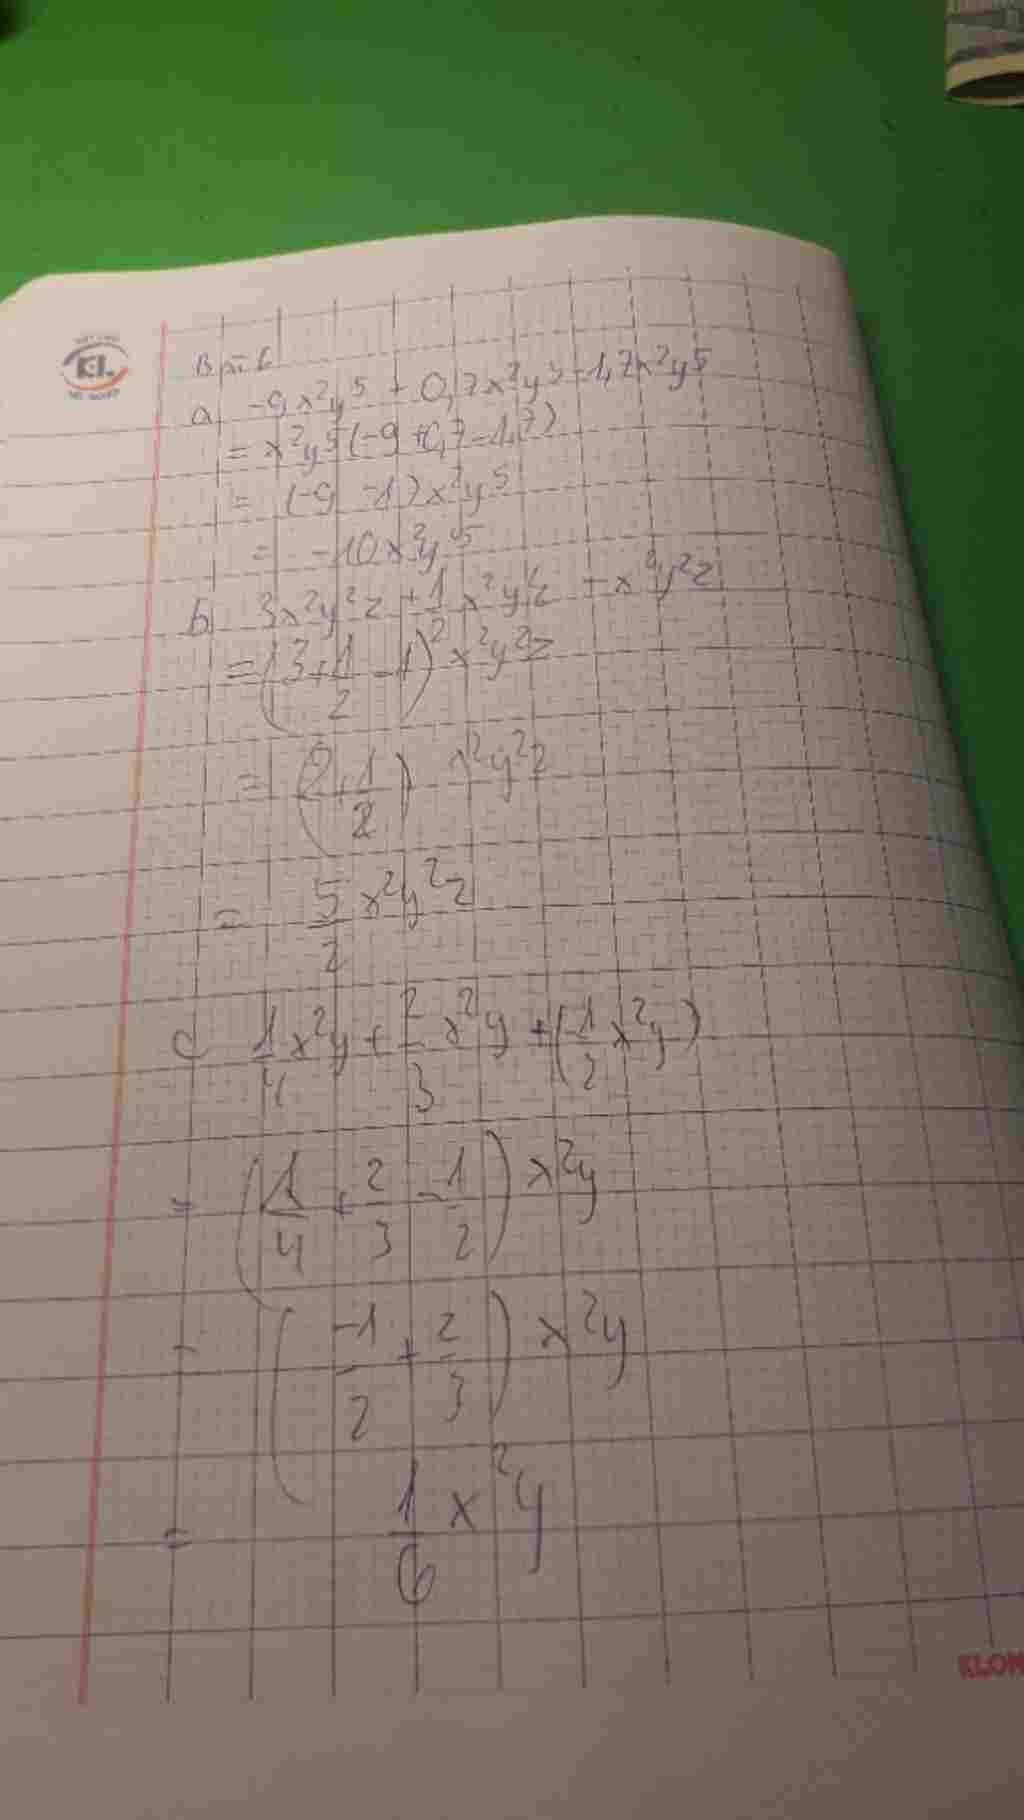 Bài 6
a -9x²y⁵ + 0,7x²y⁵ - 1,7x²y⁵
= x²y⁵(-9+0,7-1,7)
= (-9 -1)x²y⁵
= -10x²y⁵
b 3x²y²z + 1/2 x²y²z - x²y²z
= (3+1/2 -1) x²y²z
= (2+1/2) x²y²z
= 5/2 x²y²z
c 1/4 x²y + 2/3 x²y + (-1/2 x²y)
= (1/4 + 2/3 - 1/2) x²y
= (-1/2 + 2/3) x²y
= 1/6 x²y
KLON